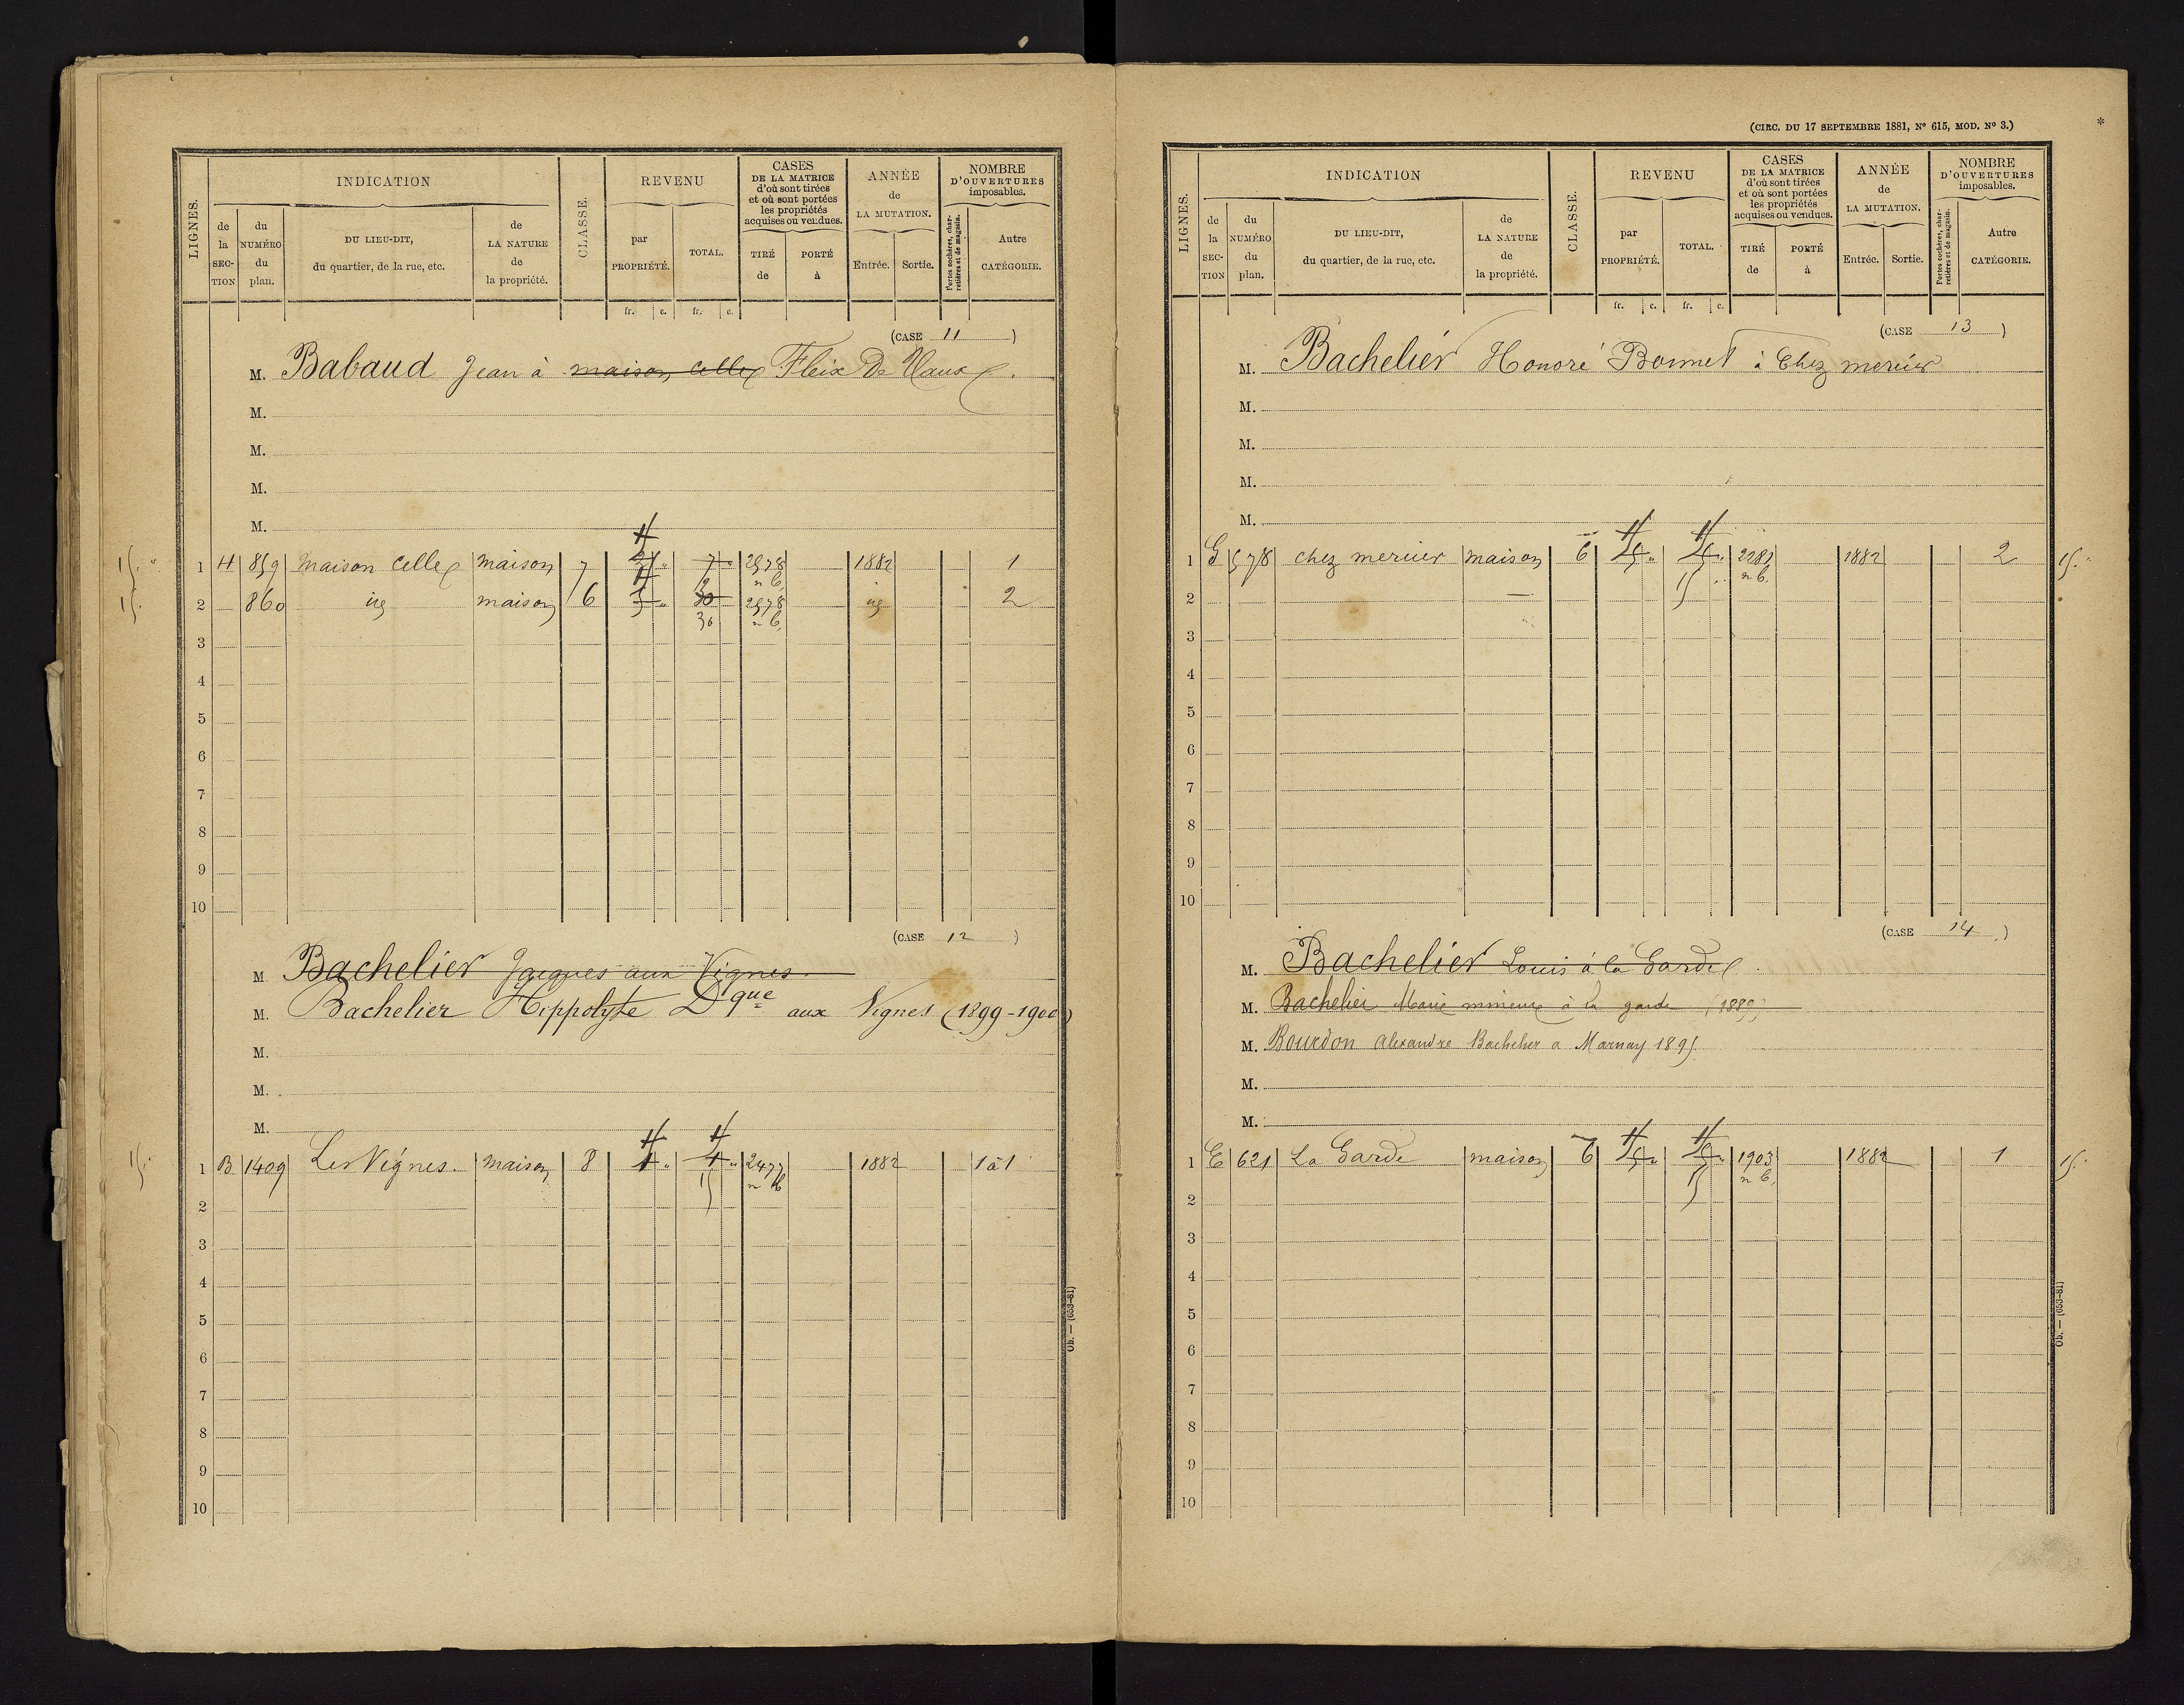 LIGNES.
INDICATION
de la SECTION
du NUMÉRO du plan.
DU LIEU-DIT, du quartier, de la rue, etc.
de LA NATURE de la propriété.
CLASSE.
REVENU
par PROPRIÉTÉ.
TOTAL.
CASES DE LA MATRICE d'où sont tirées et où sont portées les propriétés acquises ou vendues.
TIRÉ de
PORTÉ à
ANNÉE de LA MUTATION.
Entrée.
Sortie.
NOMBRE D'OUVERTURES imposables.
Portes cochères, charretières et de magasin.
Autre CATÉGORIE.
fr. c. fr. c.
(CASE 11)
M. Babaud Jean à maison celle Fleix De Vaux
M.
M.
M.
M.
1 H 859 maison celle maison 7 7 2578 1882 1
n b.
2 860 id maison 6 30 2578 id 2
30 n b.
3
4
5
6
7
8
9
10
(CASE 12)
M. Bachelier Jacques aux Vignes
M. Bachelier Hippolyte Dque aux Vignes (1899-1900)
M.
M.
M.
15. 1 B 1409 Les Vignes. maison 8 4 4 2477 1882 1 à 1
15 n b
2
3
4
5
6
7
8
9
10
Ob. — (653-81)
(CIRC. DU 17 SEPTEMBRE 1881, N° 615, MOD. N° 3.)
*
LIGNES.
INDICATION
de la SECTION
du NUMÉRO du plan.
DU LIEU-DIT, du quartier, de la rue, etc.
de LA NATURE de la propriété.
CLASSE.
REVENU
par PROPRIÉTÉ.
TOTAL.
CASES DE LA MATRICE d'où sont tirées et où sont portées les propriétés acquises ou vendues.
TIRÉ de
PORTÉ à
ANNÉE de LA MUTATION.
Entrée.
Sortie.
NOMBRE D'OUVERTURES imposables.
Portes cochères, charretières et de magasin.
Autre CATÉGORIE.
fr. c. fr. c.
(CASE 13)
M. Bachelier Honoré Bonnet à Chez mercier
M.
M.
M.
M.
1 G 578 chez mercier maison 6 2281 1882 2 15.
15 n b.
2
3
4
5
6
7
8
9
10
(CASE 14)
M. Bachelier Louis à la Garde
M. Bachelier Marie mineure à la garde (1889)
M. Bourdon Alexandre Bachelier a Marnay 1895
M.
M.
1 E 621 La Garde maison 6 1903 1882 1 15.
15 n b.
2
3
4
5
6
7
8
9
10
Ob. — (653-81)